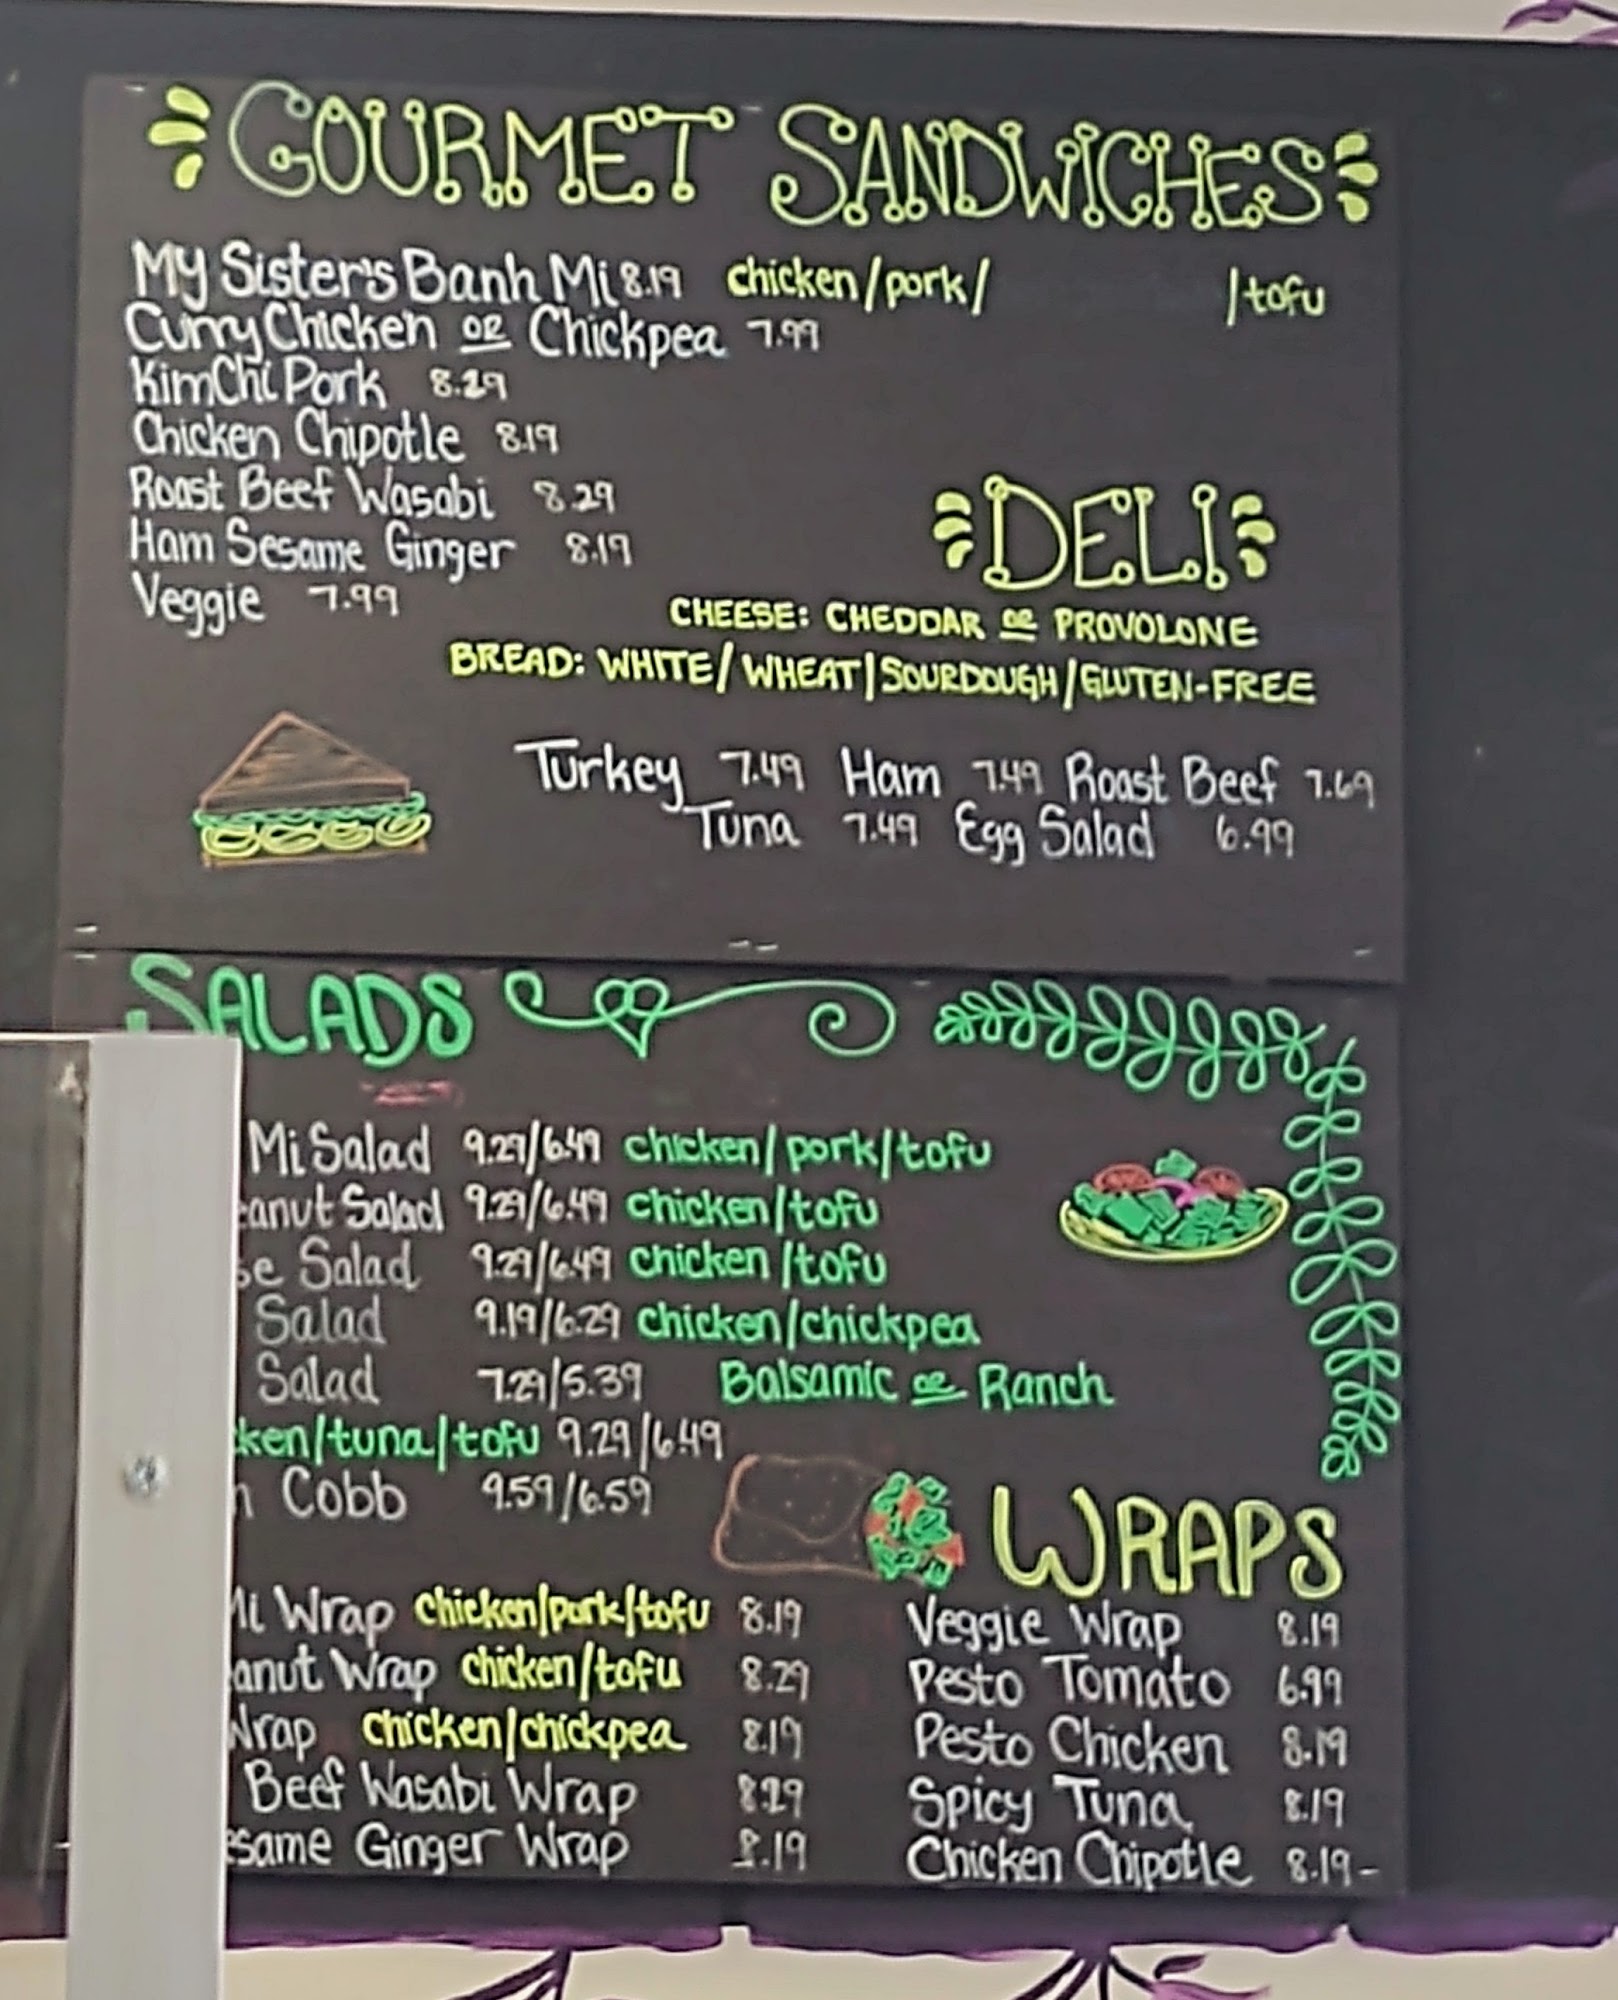 GOURMET SANDWICHES
My Sister's Banh Mi 8.19 chicken/pork/ /tofu
Curry Chicken OR Chickpea 7.99
KimChi Pork 8.29
Chicken Chipotle 8.19
Roast Beef Wasabi 8.29
Ham Sesame Ginger 8.19
Veggie 7.99
DELI
CHEESE: CHEDDAR OR PROVOLONE
BREAD: WHITE/WHEAT/SOURDOUGH/GLUTEN-FREE
Turkey 7.49 Ham 7.49 Roast Beef 7.69
Tuna 7.49 Egg Salad 6.99
SALADS
Mi Salad 9.29/6.49 chicken/pork/tofu
anut Salad 9.29/6.49 chicken/tofu
se Salad 9.29/6.49 chicken/tofu
Salad 9.19/6.29 chicken/chickpea
Salad 7.29/5.39 Balsamic OR Ranch
ken/tuna/tofu 9.29/6.49
Cobb 9.59/6.59
WRAPS
Mi Wrap chicken/pork/tofu 8.19
anut Wrap chicken/tofu 8.29
Wrap chicken/chickpea 8.19
Beef Wasabi Wrap 8.29
esame Ginger Wrap 8.19
Veggie Wrap 8.19
Pesto Tomato 6.99
Pesto Chicken 8.19
Spicy Tuna 8.19
Chicken Chipotle 8.19-